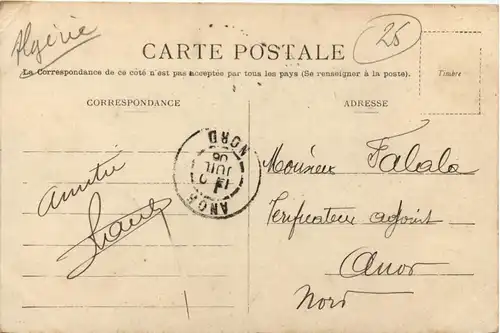 Algérie
26
CARTE POSTALE
La Correspondance de ce côté n'est pas acceptée par tous les pays (Se renseigner à la poste).
Timbre
CORRESPONDANCE
ADRESSE
Amitié
Monsieur Falala
Vérificateur adjoint
Anor
Nord
ANOR
JUIL
06
NORD